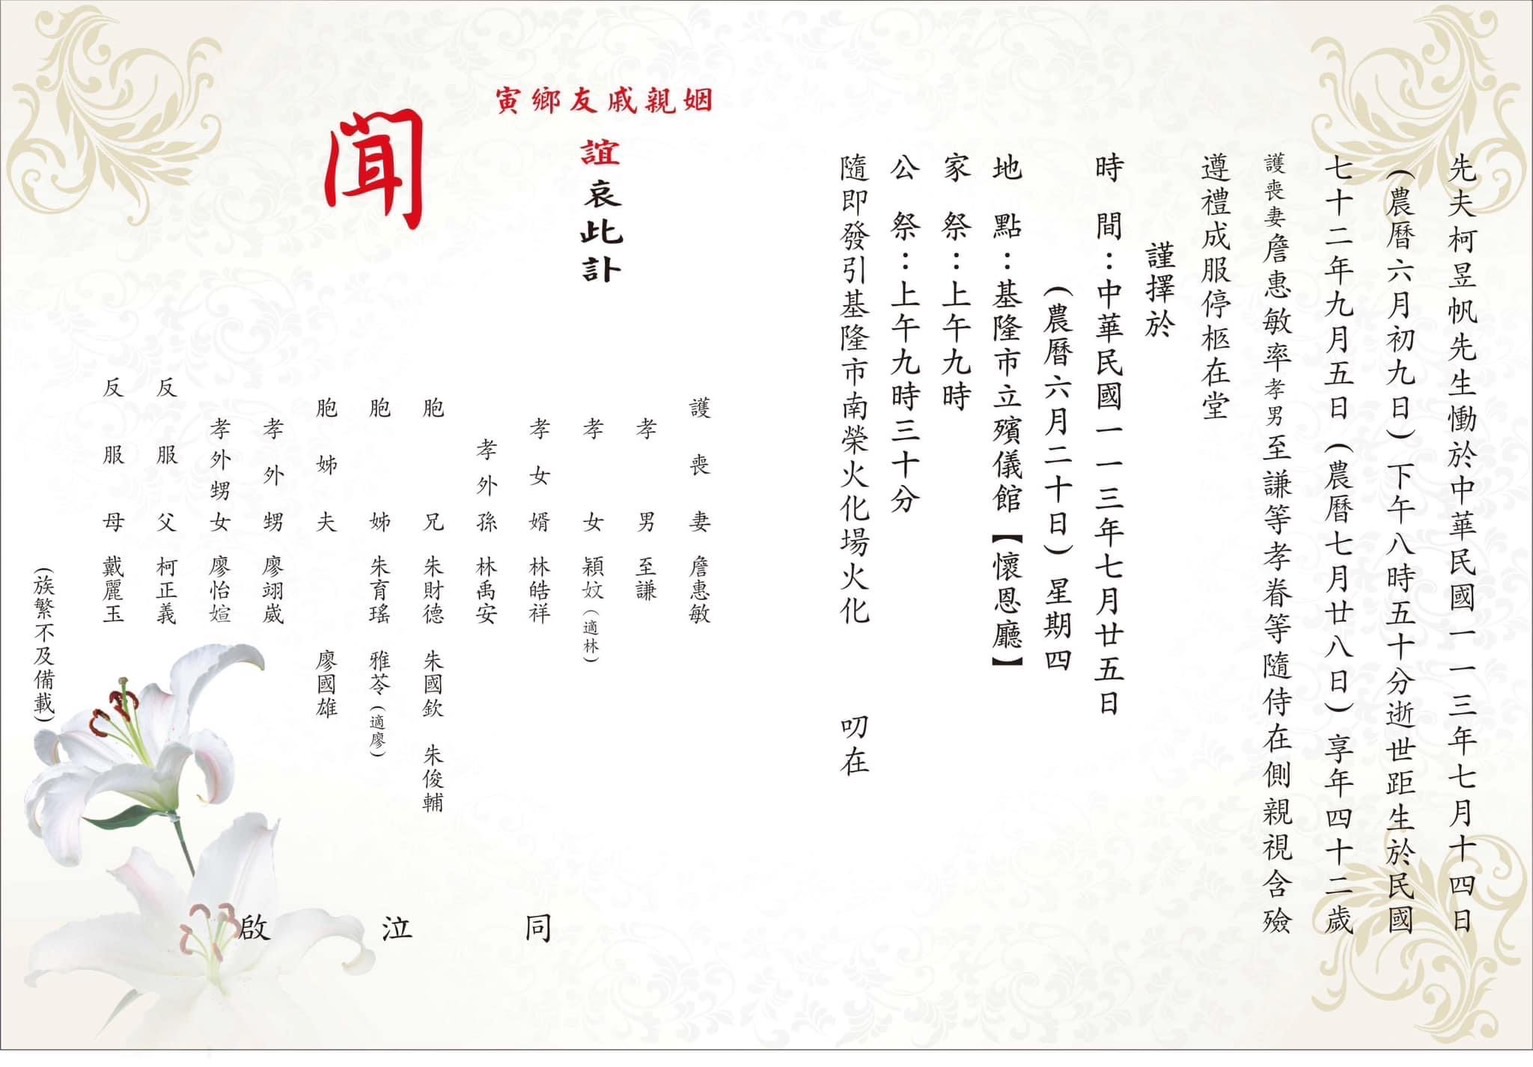 先夫柯昱帆先生慟於中華民國一一三年七月十四日
(農曆六月初九日)下午八時五十分逝世距生於民國
七十二年九月五日(農曆七月廿八日)享年四十二歲
護喪妻詹惠敏率孝男至謙等孝眷等隨侍在側親視含殮
遵禮成服停柩在堂
謹擇於
時間：中華民國一一三年七月廿五日
(農曆六月二十日)星期四
地點：基隆市立殯儀館【懷恩廳】
家祭：上午九時
公祭：上午九時三十分
隨即發引基隆市南榮火化場火化 叨在
寅鄉友戚親姻
誼哀此訃
聞
護喪妻 詹惠敏
孝男 至謙
孝女 穎妏(適林)
孝女婿 林皓祥
孝外孫 林禹安
胞兄 朱財德 朱國欽 朱俊輔
胞姊 朱育瑤 雅苓(適廖)
胞姊夫 廖國雄
孝外甥 廖翊崴
孝外甥女 廖怡媗
反服父 柯正義
反服母 戴麗玉
(族繁不及備載)
同泣啟